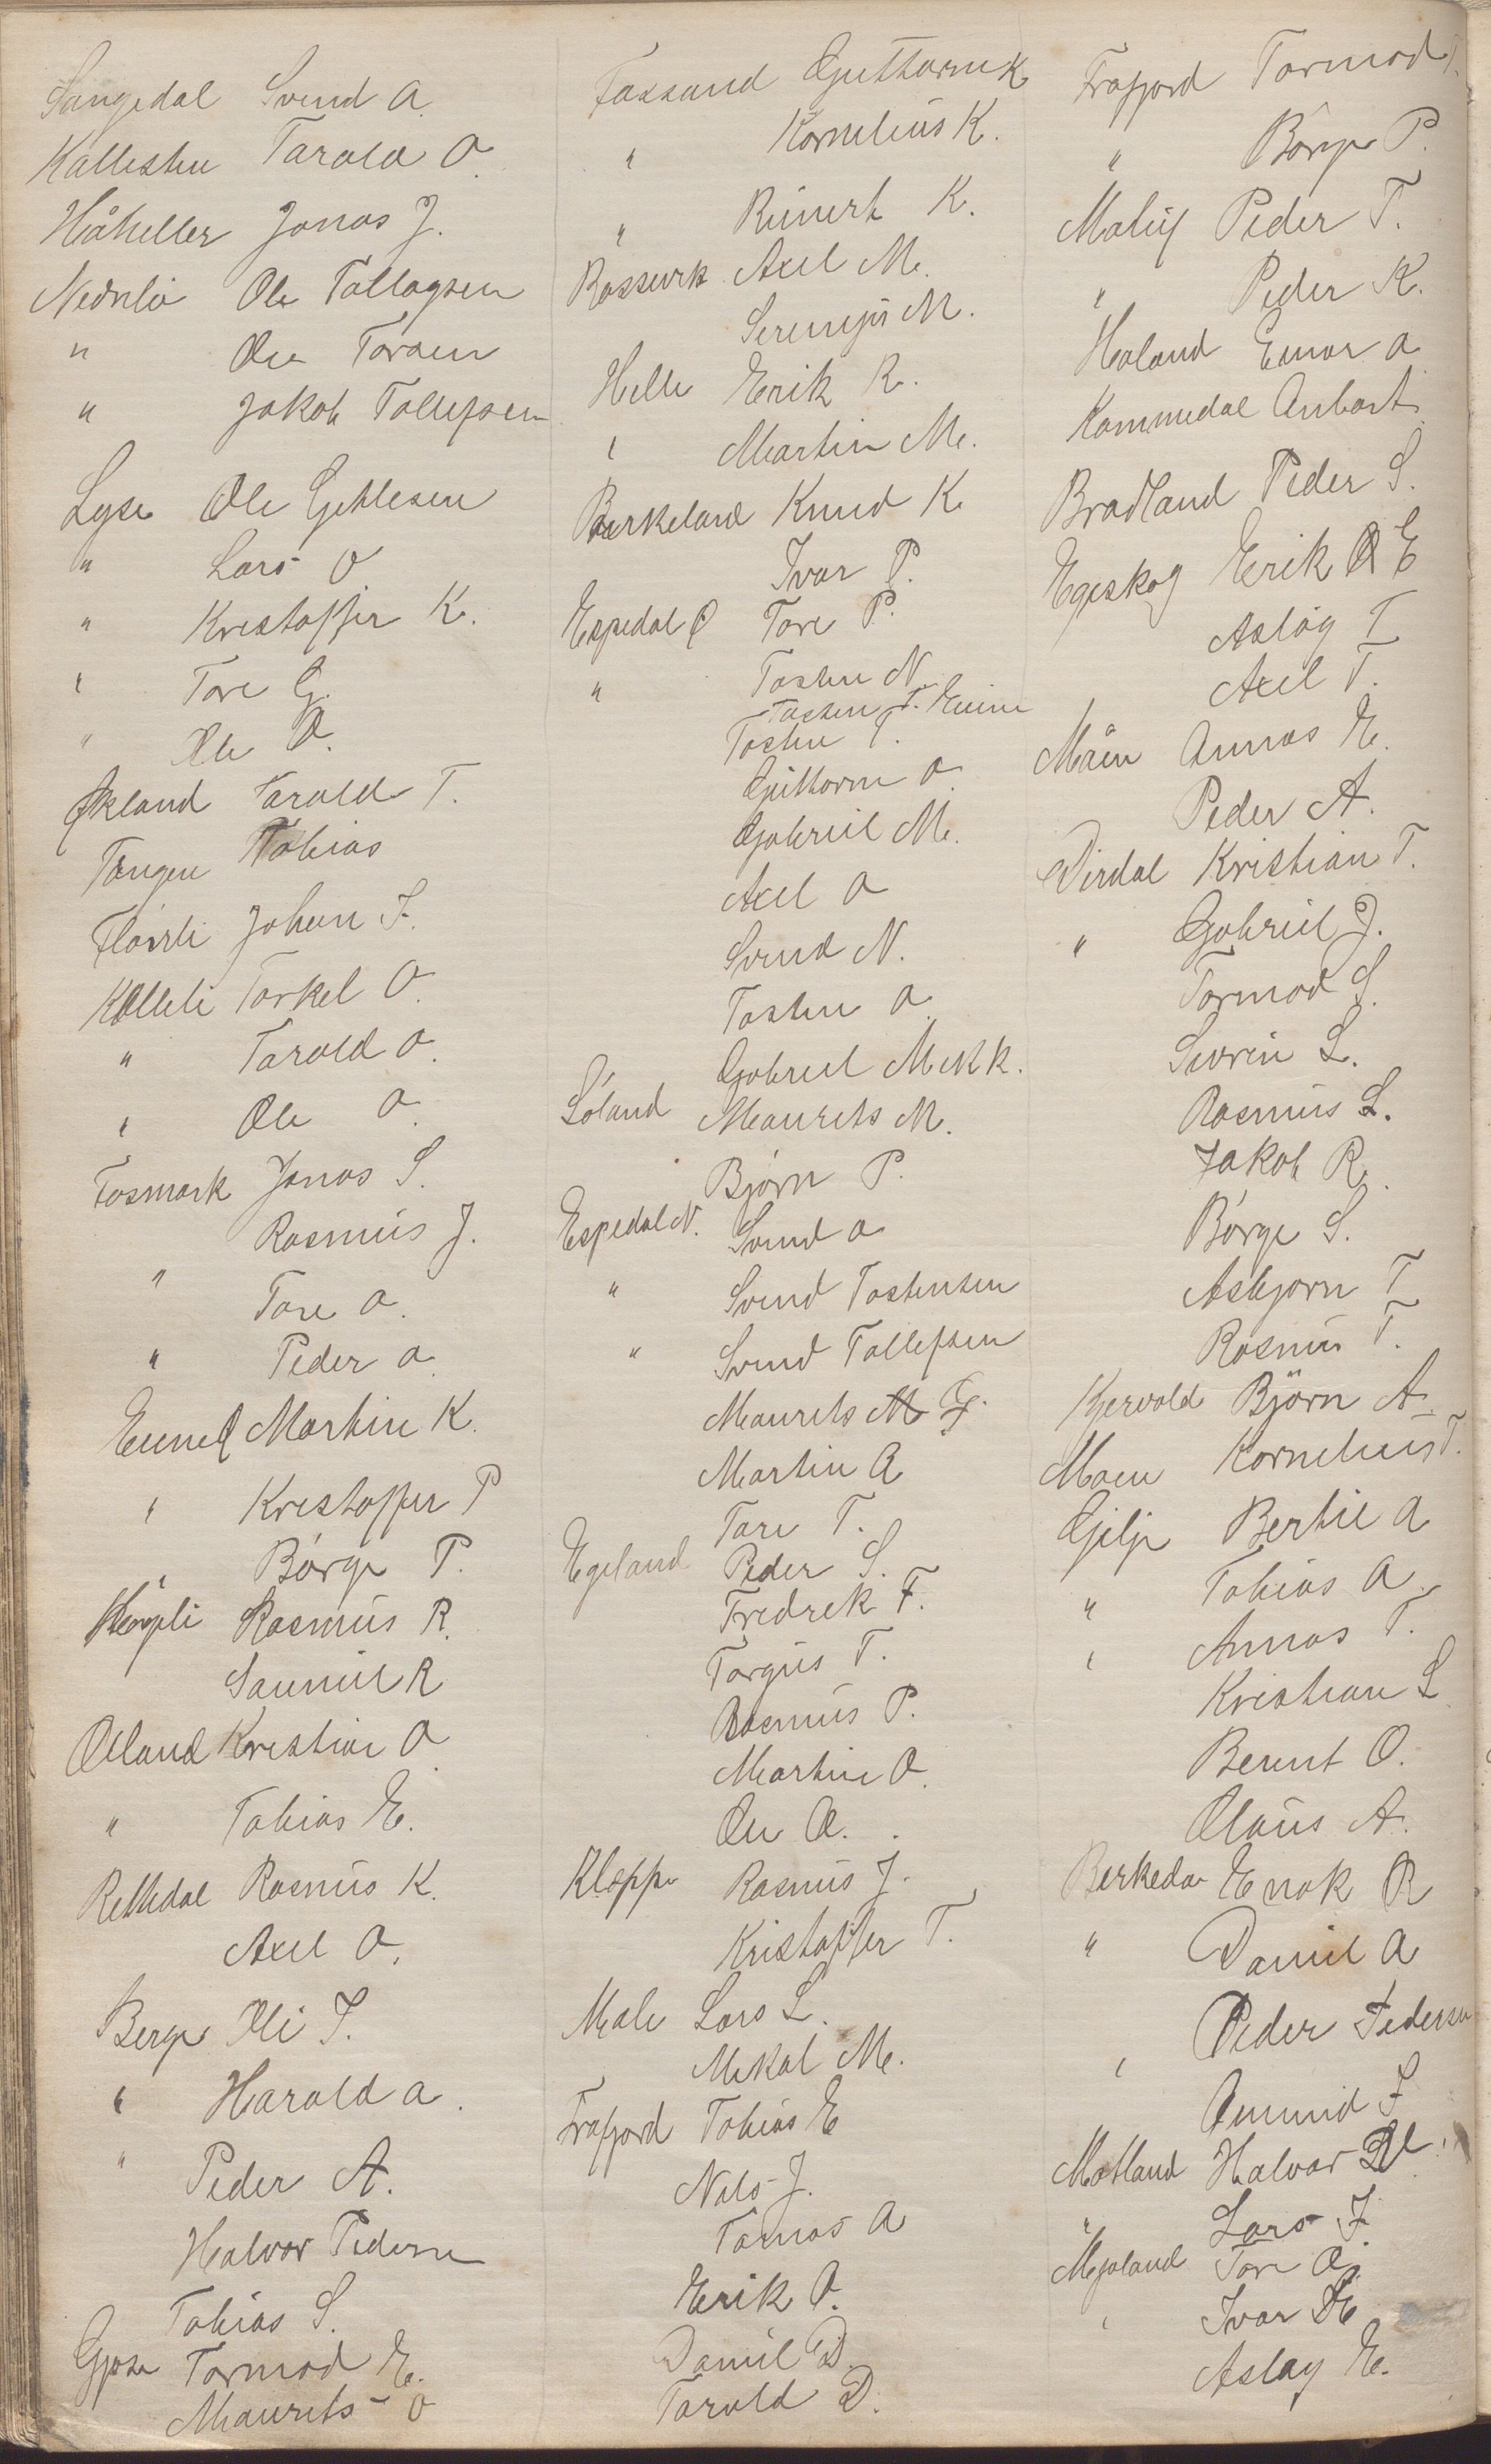 Songedal Svend A.
Kallesten Tarald O.
Håheller Jonas J.
Nedrebø Ole Tollagsen
" Ole Torsen
" Jakob Tollefsen
Lyse Ole Gitlesen
" Lars O
" Kristoffer K.
" Tore G.
" Ole O.
Økland Tarald T.
Tangen Tobias
Flørli Johan J.
Kalleli Torkel O.
" Tarald O.
" Ole O.
Fosmark Jonas S.
Rasmus J.
" Tore O.
" Peder O.
Eiene Martin K.
" Kristoffer P
" Børge P.
Høgeli Rasmus R.
Samuel R
Ølland Kristian O.
" Tobias E.
Rettedal Rasmus K.
Axel O.
Berge Ole T.
" Harald a.
" Peder A.
Halvor Pedersen
Tobias S.
Gjøse Tormod E.
Maurits O
Fossand Guttorm K.
" Kornelius K.
" Reinert K.
Rossevik Axel M.
Serenius M.
Helle Erik R.
" Martin M.
Berkeland Knud K.
Ivar P.
Espedal Ø Tore P.
" Tosten N.
Tosten T. Eiene
Tosten T.
Guttorm O.
Gabriel M.
Axel O
Svend N.
Tosten O.
Gabriel M K K.
Løland Maurits M.
Bjørn P.
Espedal N. Svend O
" Svend Tostensen
" Svend Tollefsen
Maurits M G.
Martin A
Tore T.
Egeland Peder S.
Fredrek F.
Torgus T.
Rasmus P.
Martin O.
Ole O.
Kleppe Rasmus J.
Kristoffer T.
Mele Lars L.
Mekal M.
Frafjord Tobias E
Nels J.
Tomas A
Erik O.
Daniel D.
Tarald D.
Frafjord Tormod T.
" Børge P.
Molaug Peder T.
" Peder K.
Haland Einar a
Kommedal Anbart
Bradland Peder S.
Egeskog Erik E
Aslag T
Axel T.
Måen Annas E.
Peder A.
Dirdal Kristian T.
" Gabriel J.
Tormod S.
Sivrin L.
Rasmus L.
Jakob R.
Børge S.
Asbjørn T
Rasmus T.
Kjervold Bjørn A.
Moen Kornelius T.
Gilje Bertil A
" Tobias A.
" Annas T.
Kristian L
Berent O.
Olaus A.
Berkeda Enok R
" Daniel A
" Peder Pedersen
Amund J
Motland Halvor
" Lars J.
Mjøland Tore O.
" Ivar E
Aslag E.